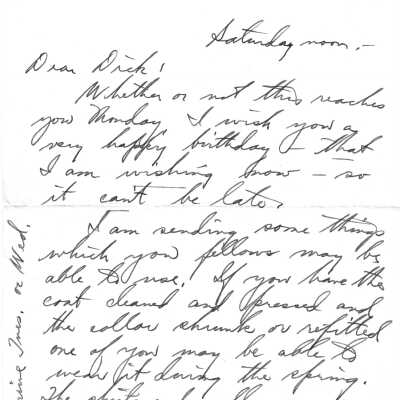 Saturday noon.—
Dear Dick!
Whether or not this reaches
you Monday I wish you a
very happy birthday — that
I am wishing now — so
it can't be late.
I am sending some things
which you fellows may be
able to use. If you have the
coat cleaned and pressed and
the collar shrunk or refitted
one of you may be able to
wear it during the spring.
The
Tues. or Wed.